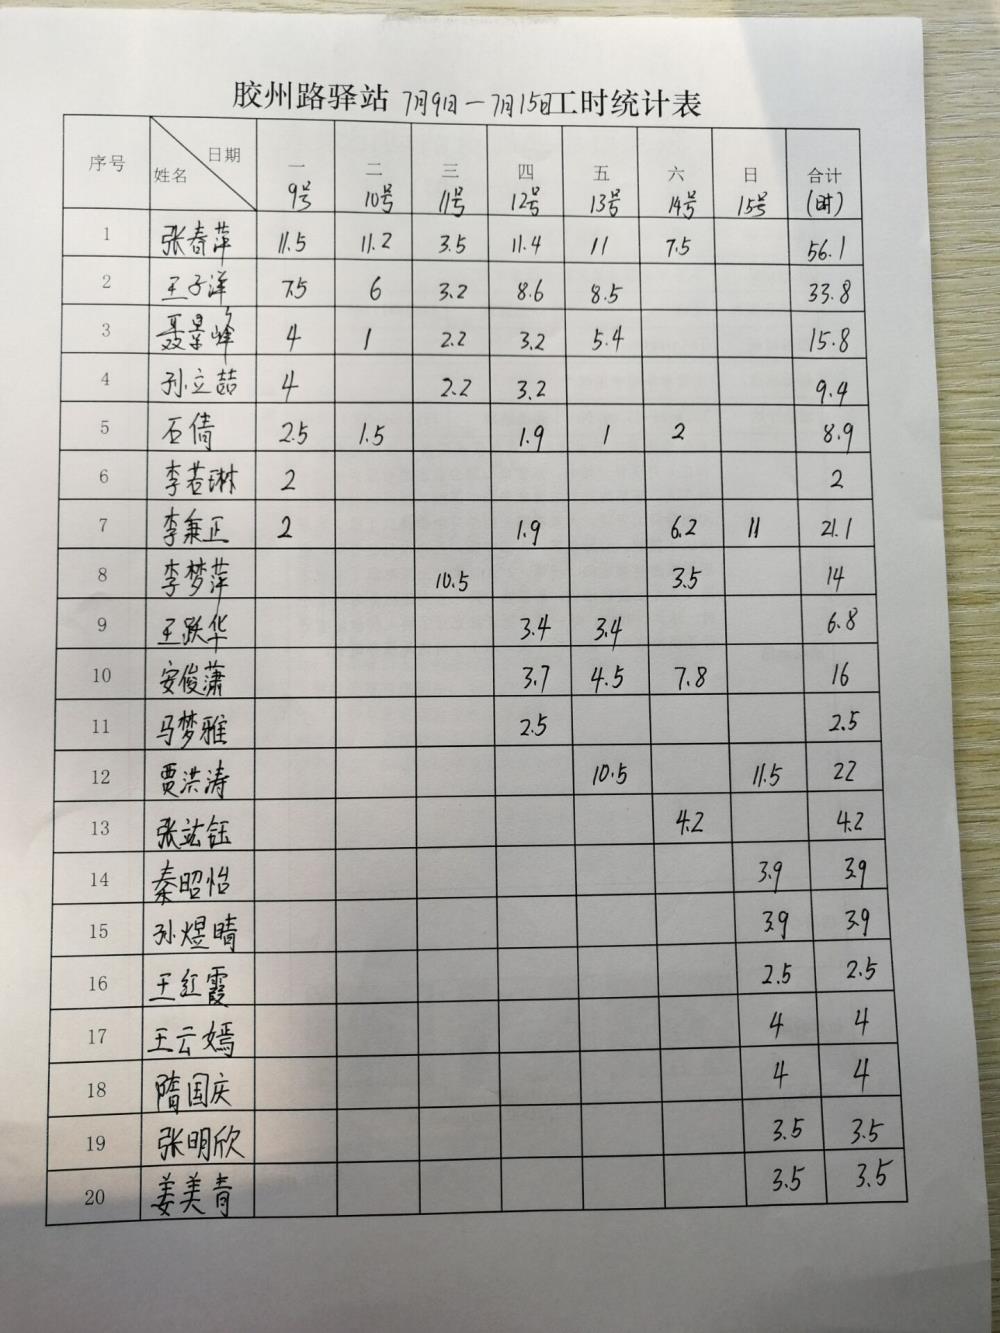 胶州路驿站 7月9日—7月15日工时统计表
序号 日期 姓名 一 9号 二 10号 三 11号 四 12号 五 13号 六 14号 日 15号 合计 (时)
1 张春萍 11.5 11.2 3.5 11.4 11 7.5 56.1
2 王子洋 7.5 6 3.2 8.6 8.5 33.8
3 聂景峰 4 1 2.2 3.2 5.4 15.8
4 孙立喆 4 2.2 3.2 9.4
5 石倩 2.5 1.5 1.9 1 2 8.9
6 李若琳 2 2
7 李秉正 2 1.9 6.2 11 21.1
8 李梦萍 10.5 3.5 14
9 王跃华 3.4 3.4 6.8
10 安俊潇 3.7 4.5 7.8 16
11 马梦雅 2.5 2.5
12 贾洪涛 10.5 11.5 22
13 张竑钰 4.2 4.2
14 秦昭怡 3.9 3.9
15 孙煜晴 3.9 3.9
16 王红霞 2.5 2.5
17 王云嫣 4 4
18 隋国庆 4 4
19 张明欣 3.5 3.5
20 姜美青 3.5 3.5